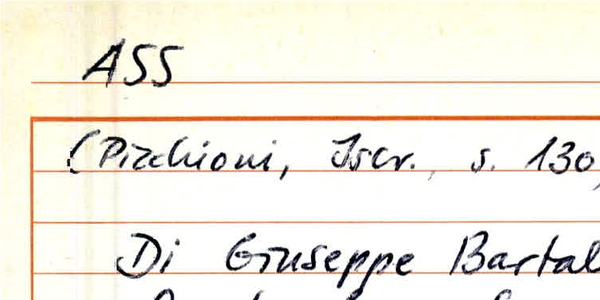 ASS
(Picchioni, Iscr., s. 130,
Di Giuseppe Bartal